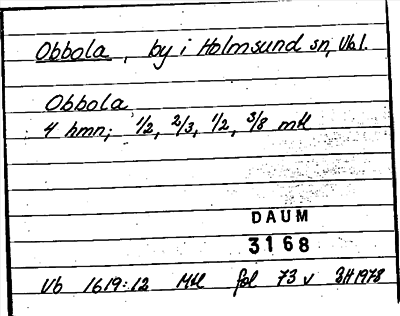 Obbola, by i Holmsund sn, Vbl.
Obbola
4 hmn; 1/2, 2/3, 1/2, 3/8 mtl
DAUM
3168
Vb 1619:12 Mtl fol 73 v 1978